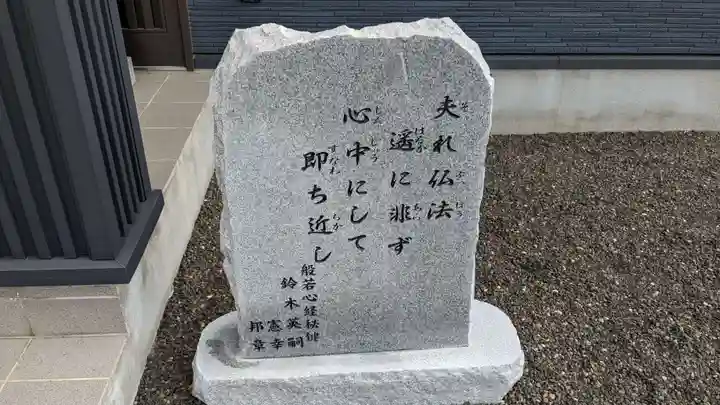 夫れ仏法
遥に非ず
心中にして
即ち近し
般若心経秘鍵
鈴木英嗣
憲幸
邦章